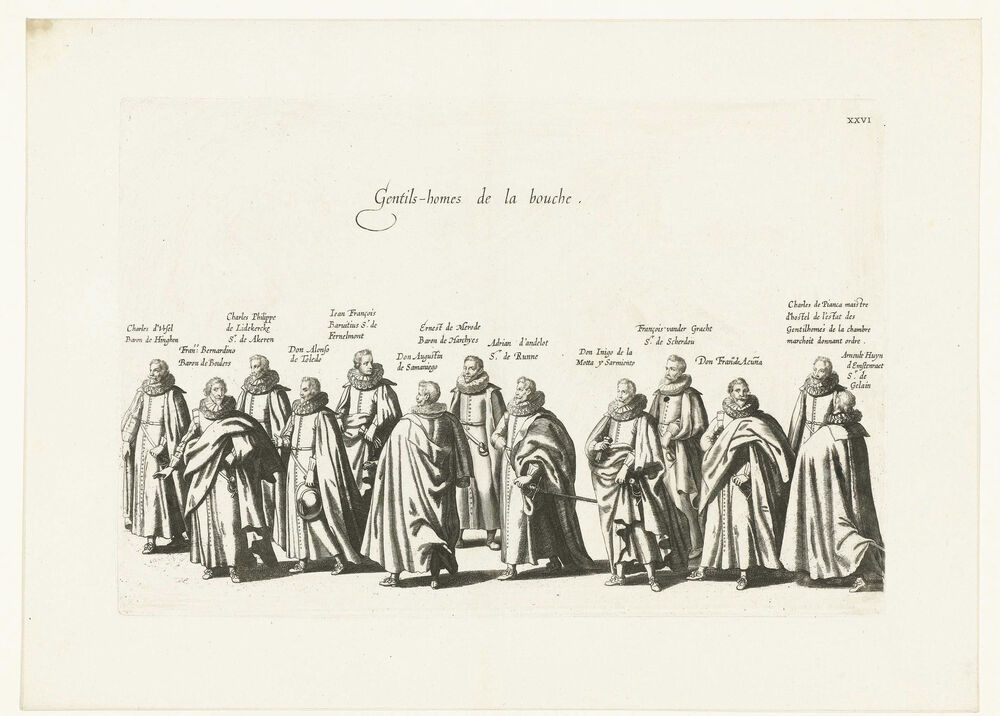 XXVI
Gentils-homes de la bouche.
Charles d'Vrsel
Baron de Hinghen
Fran.s Bernardino
Baron de Boulers
Charles Philippe
de Lidekercke
S.r de Akeren
Don Alonso
de Toledo
Iean François
Baruitius S.r de
Fernelmont
Don Augustin
de Samaniego
Ernest de Merode
Baron de Harchyes
Adrian d'andelot
S.r de Runne
Don Inigo de la
Motta y Sarmiento
François vander Gracht
S.r de Scherdou
Don Fran.de Acuña
Charles de Pianca maistre
d'hostel de l'estat des
Gentilhomes de la chambre
marcheit donnant ordre.
Arnoult Huyn
d'Emstenraet
S.r de
Gelain